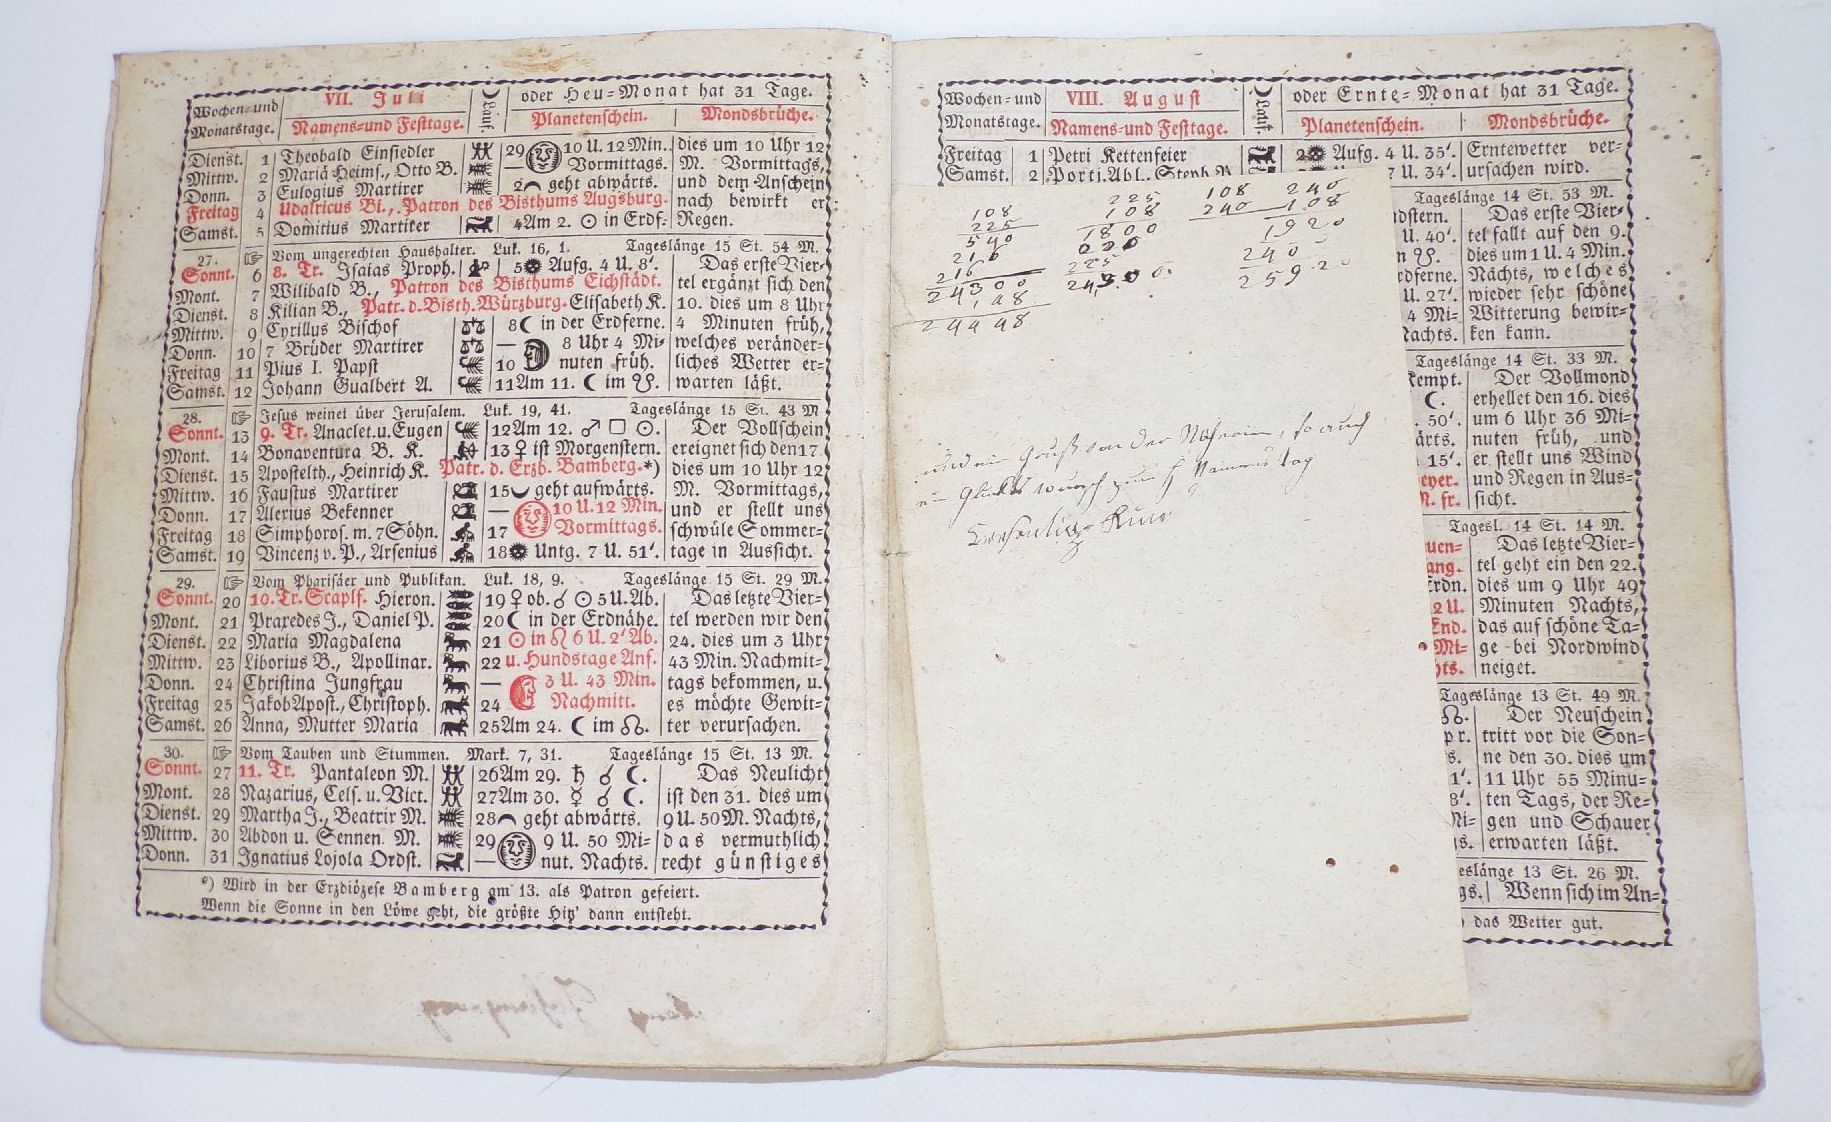 Wochen-und Monatstage. VII. Juli Namens-und Festtage. ☾ Lauf. oder Heu-Monat hat 31 Tage. Planetenschein. Mondsbrüche.
Dienst. 1 Theobald Einsiedler 29 10 U. 12 Min. dies um 10 Uhr 12
Mittw. 2 Mariä Heims., Otto B. — Vormittags. M. Vormittags,
Donn. 3 Eulogius Martirer 2 geht abwärts. und dem Anschein
Freitag 4 Udalricus Bi., Patron des Bisthums Augsburg. nach bewirkt er
Samst. 5 Domitius Martirer 4 Am 2. ☉ in Erdf: Regen.
27. ☞ Vom ungerechten Haushalter. Luk. 16, 1. Tageslänge 15 St. 54 M.
Sonnt. 6 8. Tr. Isaias Proph. 5 Aufg. 4 U. 8'. Das erste Vier-
Mont. 7 Wilibald B., Patron des Bisthums Eichstädt. tel ergänzt sich den
Dienst. 8 Kilian B., Patr. d. Bisth. Würzburg. Elisabeth K. 10. dies um 8 Uhr
Mittw. 9 Cyrillus Bischof 8 ☾ in der Erdferne. 4 Minuten früh,
Donn. 10 7 Brüder Martirer — 8 Uhr 4 Mi- welches veränder-
Freitag 11 Pius I. Papst 10 nuten früh. liches Wetter er-
Samst. 12 Johann Gualbert A. 11 Am 11. ☾ im ☋. warten läßt.
28. ☞ Jesus weinet über Jerusalem. Luk. 19, 41. Tageslänge 15 St. 43 M
Sonnt. 13 9. Tr. Anaclet. u. Eugen 12 Am 12. ♂ □ ☉. Der Vollschein
Mont. 14 Bonaventura B. K. 13 ♀ ist Morgenstern. ereignet sich den 17
Dienst. 15 Apostelth., Heinrich K. Patr. d. Erzb. Bamberg. *) dies um 10 Uhr 12
Mittw. 16 Faustus Martirer 15 geht aufwärts. M. Vormittags,
Donn. 17 Alexius Bekenner — 10 U. 12 Min. und er stellt uns
Freitag 18 Simphoros. m. 7 Söhn. 17 Vormittags. schwüle Sommer-
Samst. 19 Vincenz v. P., Arsenius 18 Untg. 7 U. 51'. tage in Aussicht.
29. ☞ Vom Pharisäer und Publikan. Luk. 18, 9. Tageslänge 15 St. 29 M.
Sonnt. 20 10. Tr. Scaplf. Hieron. 19 ♀ ob. ☌ ☉ 5 U. Ab. Das letzte Vier-
Mont. 21 Praxedes J., Daniel P. 20 ☾ in der Erdnähe. tel werden wir den
Dienst. 22 Maria Magdalena 21 ☉ in ♌ 6 U. 2' Ab. 24. dies um 3 Uhr
Mittw. 23 Liborius B., Apollinar. 22 u. Hundstage Anf. 43 Min. Nachmit-
Donn. 24 Christina Jungfrau — 3 U. 43 Min. tags bekommen, u.
Freitag 25 Jakob Apost., Christoph. 24 Nachmitt. es möchte Gewit-
Samst. 26 Anna, Mutter Maria 25 Am 24. ☾ im ☊. ter verursachen.
30. ☞ Vom Tauben und Stummen. Mark. 7, 31. Tageslänge 15 St. 13 M.
Sonnt. 27 11. Tr. Pantaleon M. 26 Am 29. ♄ ☌ ☾. Das Neulicht
Mont. 28 Nazarius, Cels. u. Vict. 27 Am 30. ☿ ☌ ☾. ist den 31. dies um
Dienst. 29 Martha J., Beatrix M. 28 geht abwärts. 9 U. 50 M. Nachts,
Mittw. 30 Abdon u. Sennen M. 29 9 U. 50 Mi- das vermuthlich
Donn. 31 Ignatius Lojola Ordst. — nut. Nachts. recht günstiges
*) Wird in der Erzdiözese Bamberg am 13. als Patron gefeiert.
Wenn die Sonne in den Löwe geht, die größte Hitz' dann entsteht.
Wochen-und Monatstage. VIII. August Namens-und Festtage. ☾ Lauf. oder Ernte-Monat hat 31 Tage. Planetenschein. Mondsbrüche.
Freitag 1 Petri Kettenfeier 2 Aufg. 4 U. 35'. Erntewetter ver-
Samst. 2 Porti. Abl., Steph 7 U. 34'. ursachen wird.
108 225 108 240
225 108 240 108
540 1800 1920
216 240
216 225 2592
24300
108
und ein Gruß von der
ein
Tageslänge 14 St. 53 M.
dstern. Das erste Vier-
U. 40'. tel fallt auf den 9.
n ☋. dies um 1 U. 4 Min.
rdferne. Nachts, welches
U. 27'. wieder sehr schöne
4 Mi- Witterung bewir-
Nachts. ken kann.
Tageslänge 14 St. 33 M.
kempt. Der Vollmond
☾. erhellet den 16. dies
50'. um 6 Uhr 36 Mi-
ärts. nuten früh, und
15'. er stellt uns Wind
eyer. und Regen in Aus-
M. fr. sicht.
Tagesl. 14 St. 14 M.
uen- Das letzte Vier-
ang. tel geht ein den 22.
Erdn. dies um 9 Uhr 49
2 U. Minuten Nachts,
End. das auf schöne Ta-
Mi- ge bei Nordwind
hts. neiget.
Tageslänge 13 St. 49 M.
☊. Der Neuschein
pr. tritt vor die Son-
s. ne den 30. dies um
1'. 11 Uhr 55 Minu-
8'. ten Tags, der Re-
Mi- gen und Schauer
gs. erwarten läßt.
eslänge 13 St. 26 M.
gs. Wenn sich im An-
das Wetter gut.